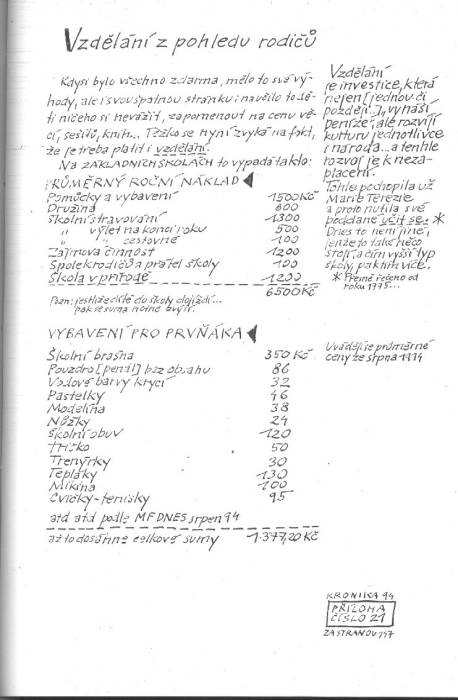 Vzdělání z pohledu rodičů
Kdysi bylo všechno zdarma, mělo to své vý-
hody, ale i svou špatnou stránku: navěilo to dě-
ti ničeho si nevážit, zapomenout na cenu vě-
cí, sešitů, knih... Těžko se nyní zvyká na fakt,
že je třeba platit i vzdělání.
Na ZÁKLADNÍCH ŠKOLÁCH to vypadá takto:
PRŮMĚRNÝ ROČNÍ NÁKLAD
Pomůcky a vybavení 1500 Kč
Družina 800
Školní stravování 1300
" výlet na konci roku 500
" " cestovné 100
Zájmová činnost 1200
Spolek rodičů a přátel školy 100
Škola v přírodě 1200
6500 Kč
Pozn: jestliže dítě do školy dojíždí...
VYBAVENÍ PRO PRVŇÁKA
Školní brašna 350 Kč
Pouzdro [penál] bez obsahu 86
Vodové barvy krycí 32
Pastelky 46
Modelína 38
Nůžky 24
Školní obuv 120
Tričko 50
Trenýrky 30
Tepláky 130
Mikina 100
Cvičky-tenisky 95
atd atd podle MF DNES srpen 94
až to dosáhne celkové sumy 1.377,20 Kč
Vzdělání
je investice, která
nejen [jednou či
později...], vynáší
peníze, ale rozvíjí
kulturu jednotlivce
i národa... a tenhle
rozvoj je k neza-
placení.
Tohle pochopila už
Marie Terezie
a proto nutila své
poddané učit se. *
Dnes to není jiné,
jenže to také něco
stojí, a čím vyšší typ
školy, pak i tím více.
* Přímě řečeno od
roku 1775...
Uvádějí se průměrné
ceny ze srpna 1994
KRONIKA 94
PŘÍLOHA
ČÍSLO 21
ZA STRANOU 117